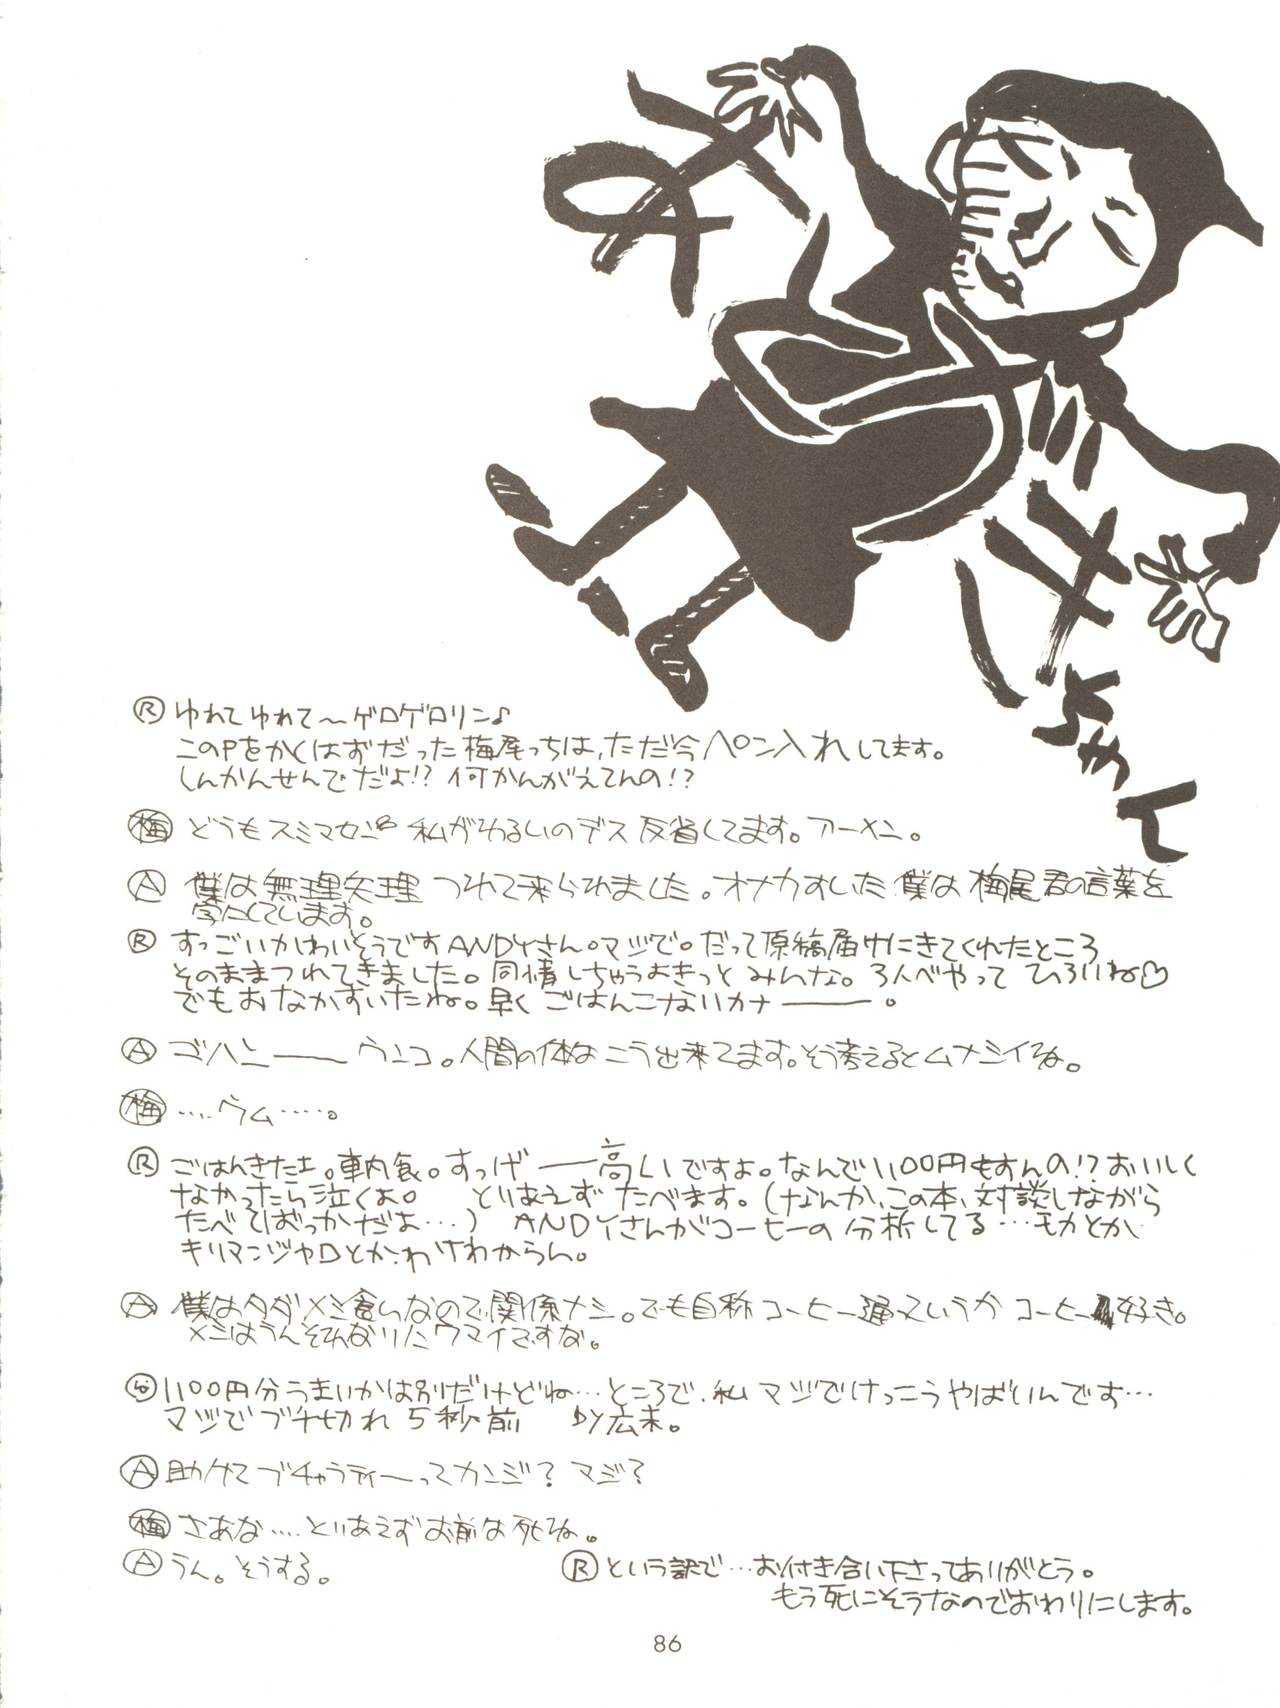 Ⓡ ゆれて ゆれて〜ゲロゲロリン♪
このPをかくはずだった梅尾っちは、ただ今ペン入れしてます。
しんかんせんでだよ!? 何かんがえてんの!?
㊍梅 どうもスミマセン 私がわるいのデス 反省してます。アーメン。
Ⓐ 僕は無理矢理 つれて来られました。オナカすいた僕は 梅尾君の言葉を
字にしています。
Ⓡ すっごいかわいそうですANDYさん。マジで。だって原稿届けにきてくれたところ
そのままつれてきました。同情しちゃうよきっと みんな。3人べやって ひろいね♡
でもおなかすいたね。早く ごはんこないカナ───。
Ⓐ ゴハン── ウンコ。人間の体は こう出来てます。そう考えるとムナシイね。
梅 ‥‥ウム‥‥‥。
Ⓡ ごはんきたよ。車内食。すっげ──高いですよ。なんで1100円もすんの!? おいしく
なかったら泣くよ。 とりあえず たべます。(なんか、この本、対談しながら
たべてばっかだよ…) ANDYさんがコーヒーの分析してる…モカとか
キリマンジャロとか、わけわからん。
Ⓐ 僕はタダメシ食いなので関係ナシ。でも自称コーヒー通っていうか コーヒー好き。
メシはうんそれなりにウマイですな。
Ⓡ 1100円分うまいかは別だけどね…ところで、私 マジでけっこうやばいんです…
マジでブチ切れ 5秒前 by広末。
Ⓐ 助けて ブチャラティーってカンジ? マジ?
梅 さあな‥‥とりあえずお前は死ね。
Ⓐ うん。そうする。
Ⓡ という訳で…お付き合い下さってありがとう。
もう死にそうなのでおわりにします。
86